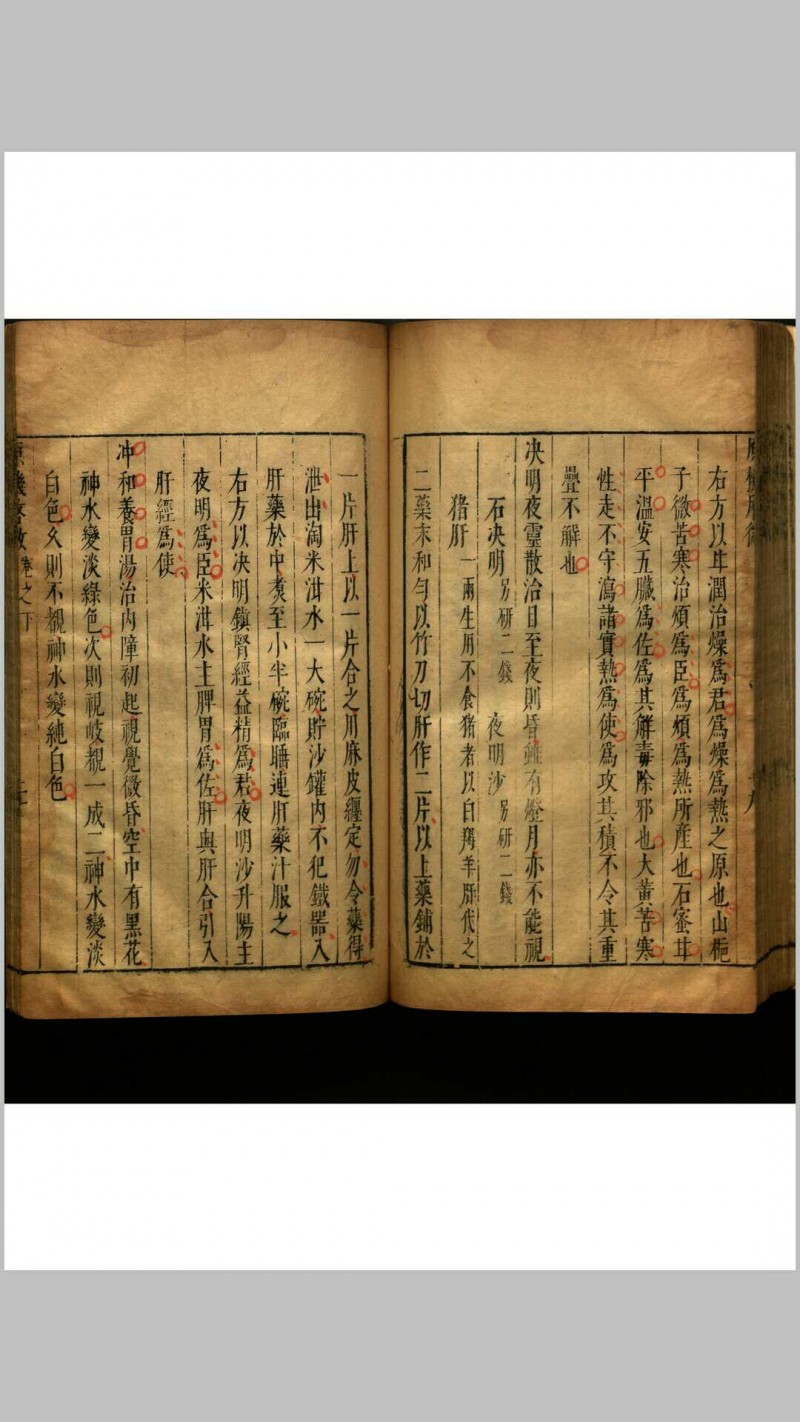 右方以井潤治燥爲君爲燥爲熱之原也山梔
子微苦寒治煩爲臣爲煩爲熱所產也石蜜甘
平溫安五臟爲佐爲其解毒除邪也大黄苦寒
性走不守瀉諸實熱爲使爲攻其積不令其重
疊不解也
决明夜靈散治目至夜則昏雖有燈月亦不能視
石决明另研二錢 夜明沙另研二錢
猪肝一兩生用不食猪者以白羯羊肝代之
二藥末和勻以竹刀切肝作二片以上藥鋪於
一片肝上以一片合之用麻皮纒定勿令藥得
泄出淘米泔水一大碗貯沙罐内不犯鐵器入
肝藥於中煑至小半碗臨睡連肝藥汁服之
右方以决明鎮腎經益精爲君夜明沙升陽主
夜明爲臣米泔水主脾胃爲佐肝與肝合引入
肝經爲使
冲和養胃湯治内障初起視覺微昏空中有黑花
神水變淡綠色次則視岐覩一成二神水變淡
白色久則不覩神水變純白色
原機啓微 卷之下